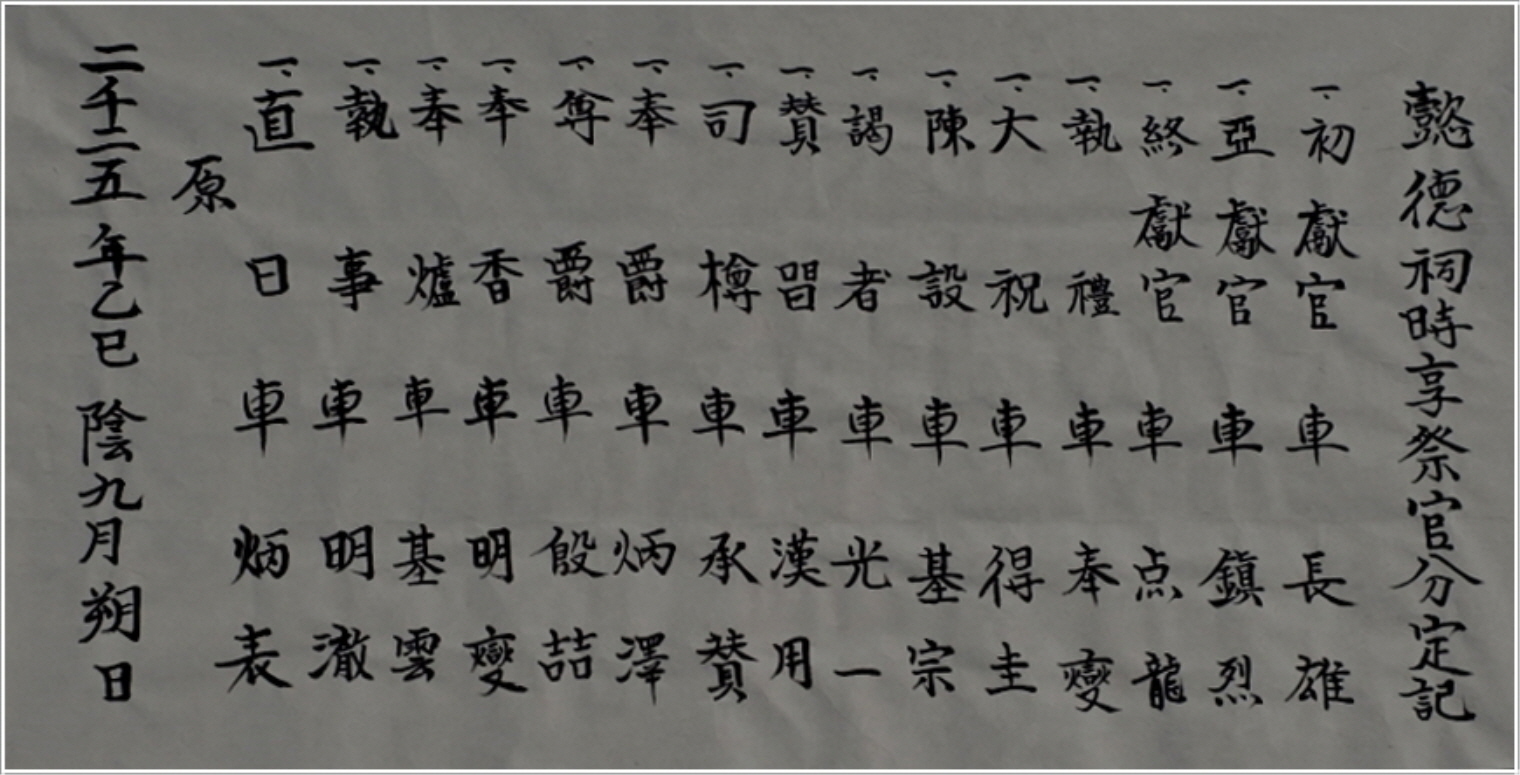 懿德祠時享祭官分定記
一. 初獻官 車長雄
一. 亞獻官 車鎭烈
一. 終獻官 車点龍
一. 執禮 車奉燮
一. 大祝 車得圭
一. 陳設 車基宗
一. 謁者 車光一
一. 賛唱 車漢用
一. 司樽 車承賛
一. 奉爵 車炳澤
一. 奠爵 車殷喆
一. 奉香 車明燮
一. 奉爐 車基雲
一. 執事 車明澈
一. 直日 車炳表
原
二千二五年乙巳 陰九月朔日